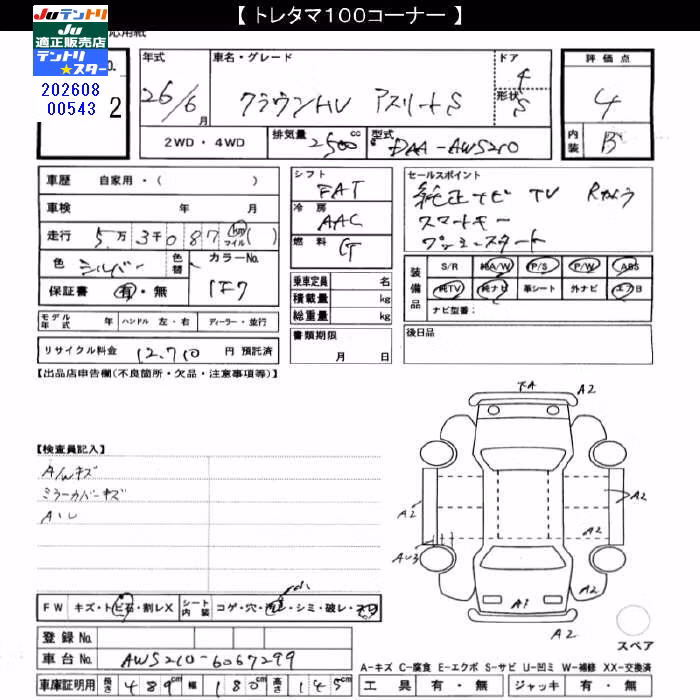 【 トレタマ100コーナー 】
Juテントリ
Ju
適正販売店
テントリ
★スター
202608
00543
応用紙
No.
2
年式
26/6月
車名・グレード
クラウンHV アスリートS
ドア
4
形状
S
評価点
4
内装
B
2WD・4WD
排気量
2500cc
型式
DAA-AWS210
車歴 自家用・( )
車検 年 月
走行 5万3千087 km マイル ( )
色 シルバー 色替
カラーNo.
1F7
保証書 有・無
シフト
FAT
冷房
AAC
燃料
乗車定員 名
積載量 kg
総重量 kg
セールスポイント
純正ナビ TV Rカメラ
スマートキー
プッシュスタート
装備品
S/R 純A/W P/S P/W ABS
純TV 純ナビ 革シート 外ナビ エアB
ナビ型番:
モデル年式 年 ハンドル 左・右 ディーラー・並行
リサイクル料金 12,710 円 預託済
書類期限
月 日
後日品
【出品店申告欄(不良箇所・欠品・注意事項等)】
【検査員記入】
A/Wキズ
ミラーカバーキズ
A2
A2
A2
A2
A2
AU3
A2
A1
A2
FW キズ・トビ石・割レX シート内装 コゲ・穴・汚レ・シミ・破レ・スレ
スペア
登録No.
車台No. AWS210-6067299
A-キズ C-腐食 E-エクボ S-サビ U-凹ミ W-補修 XX-交換済
車庫証明用 長さ 489cm 幅 180cm 高さ 145cm
工具 有・無 ジャッキ 有・無